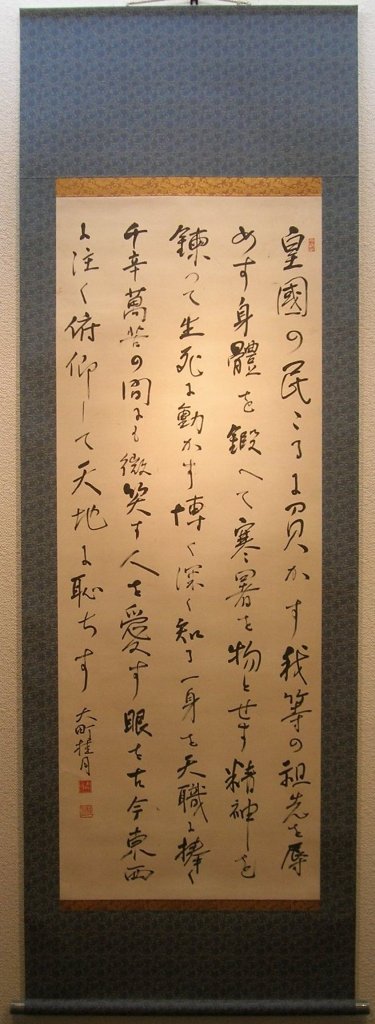 皇國の民たるに負かす我等の祖先を辱
めす身體を鍛へて寒暑を物とせす精神を
錬つて生死に動かす博く深く知る一身を天職に捧く
千辛萬苦の間にも微笑す人を愛す眼を古今東西
に注く俯仰して天地に恥ちす 大町桂月